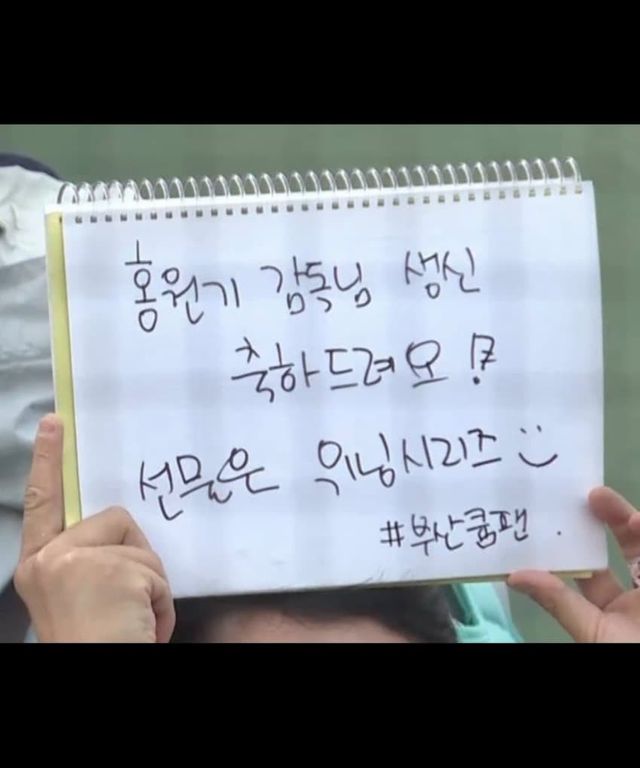 홍원기 감독님 생신
축하드려요!
선물은 위닝시리즈 :)
#부산쿰팬.